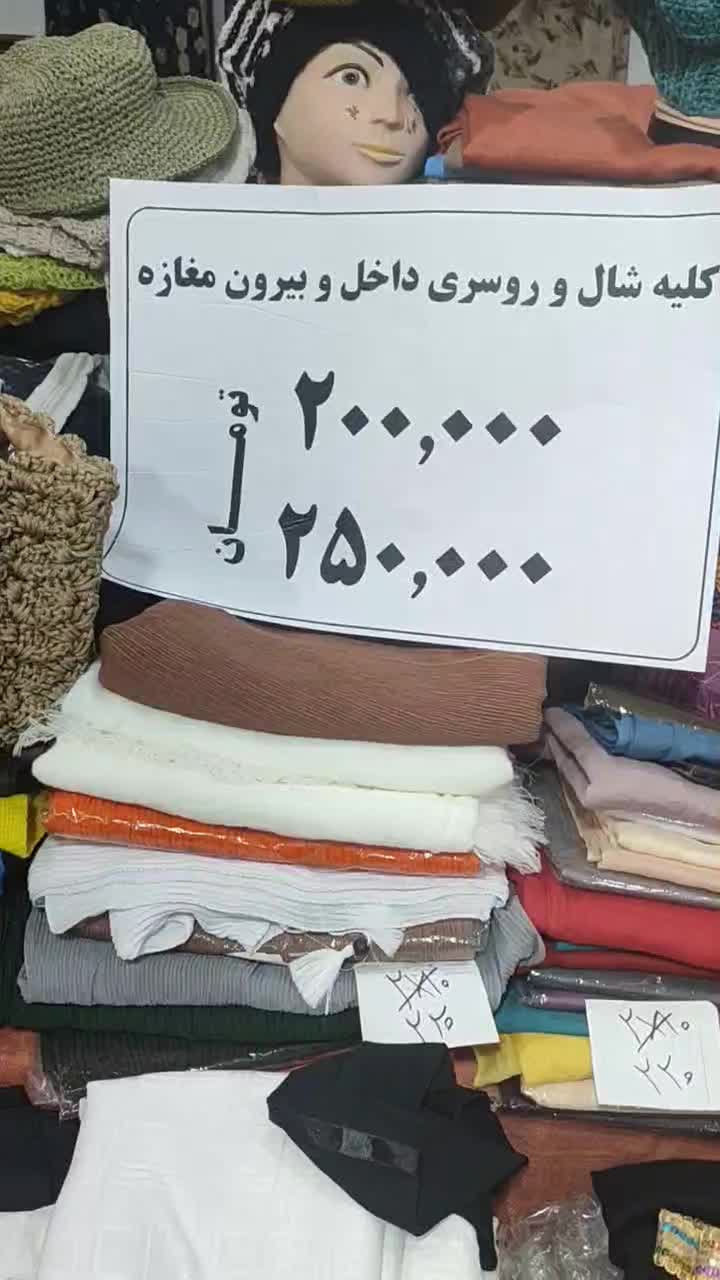 کلیه شال و روسری داخل و بیرون مغازه
۲۰۰,۰۰۰
تومــان
۲۵۰,۰۰۰
۲۲۰
۲۲۰